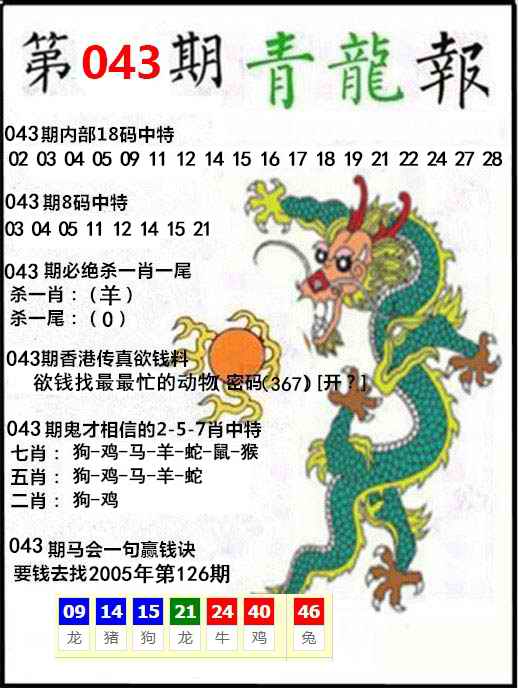 第043期青龍報
043期内部18码中特
02 03 04 05 09 11 12 14 15 16 17 18 19 21 22 24 27 28
043期8码中特
03 04 05 11 12 14 15 21
043 期必绝杀一肖一尾
杀一肖：（羊）
杀一尾：（0）
043期香港传真欲钱料
欲钱找最最忙的动物 密码(367) [开？]
043期鬼才相信的2-5-7肖中特
七肖： 狗-鸡-马-羊-蛇-鼠-猴
五肖： 狗-鸡-马-羊-蛇
二肖： 狗-鸡
043 期马会一句赢钱诀
要钱去找2005年第126期
09 14 15 21 24 40 46
龙 猪 狗 龙 牛 鸡 兔